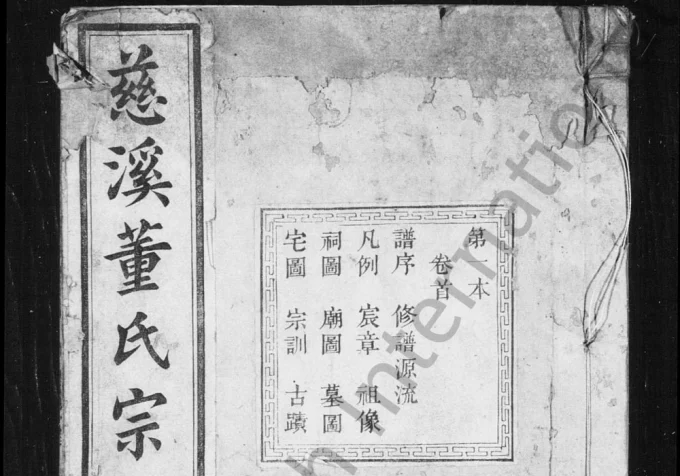 慈溪董氏宗
第一本
卷首
譜序 修譜源流
凡例 宸章 祖像
祠圖 廟圖 墓圖
宅圖 宗訓 古蹟
h Internatio